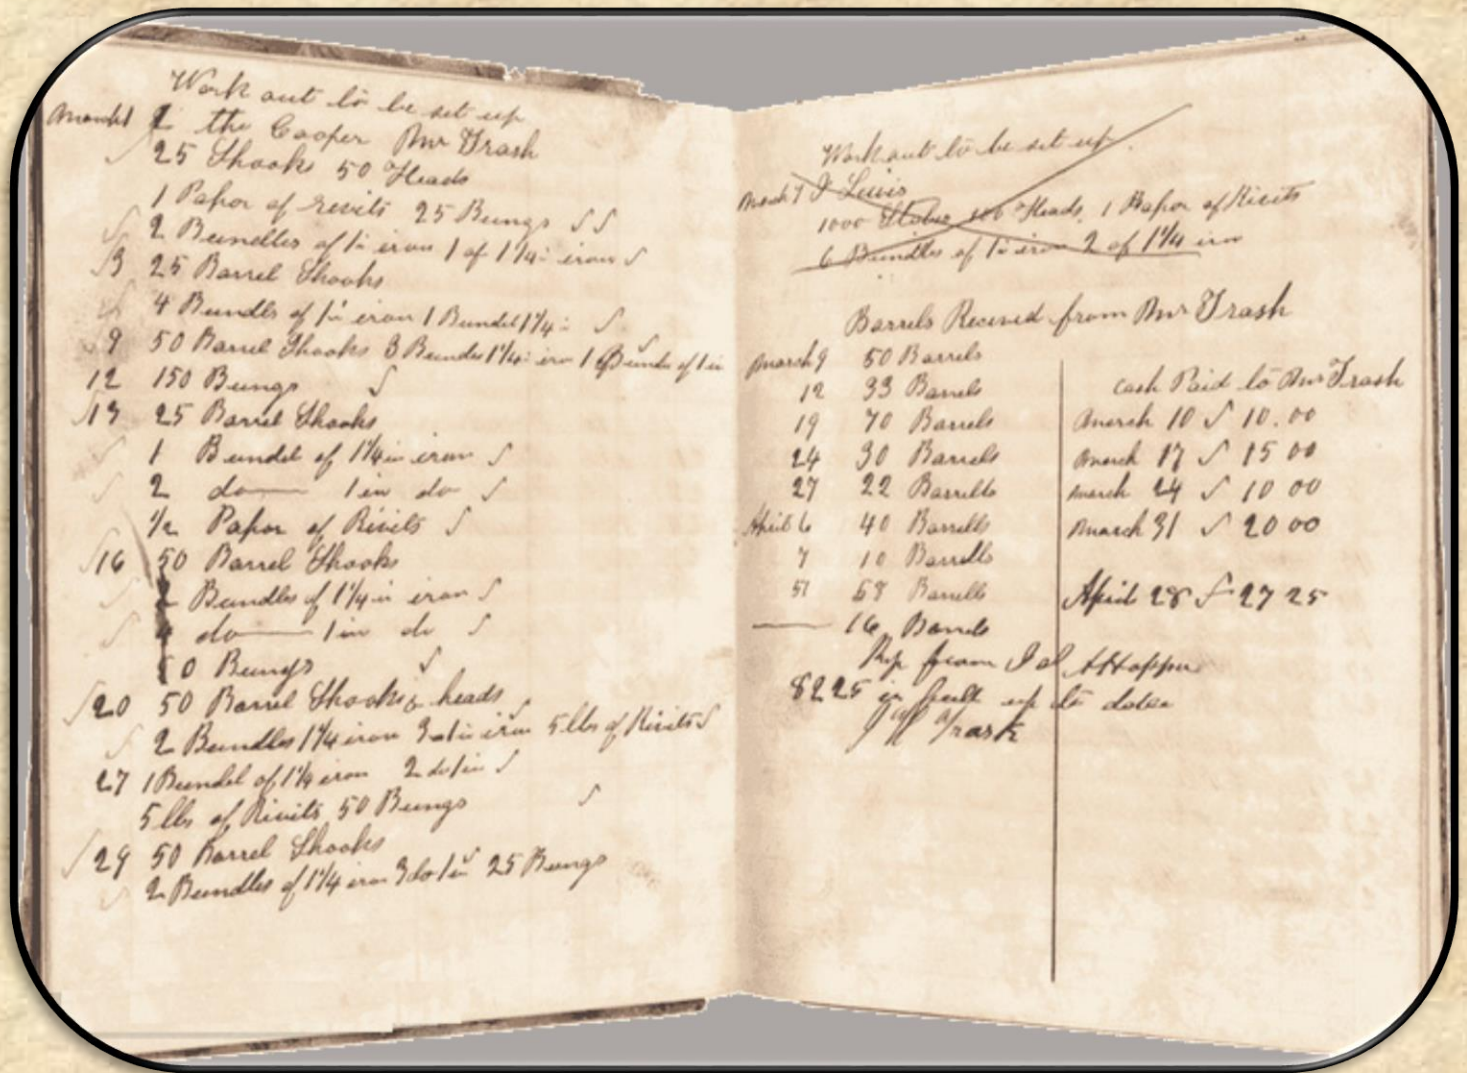 Work out to be set up
March 1 the Cooper Mr Trask
25 Shooks 50 Heads
1 Papor of revits 25 Bungs
2 Bundles of 1in iron 1 of 1 1/4in iron
3 25 Barrel Shooks
4 Bundls of 1in iron 1 Bundel 1 1/4in
9 50 Barrel Shooks 3 Bundes 1 1/4in iron 1 Bundle of 1in
12 150 Bungs
13 25 Barrel Shooks
1 Bundel of 1 1/4in iron
2 do 1in do
1/2 Papor of Rivits
16 50 Barrel Shooks
2 Bundles of 1 1/4in iron
4 do 1in do
50 Bungs
20 50 Barrel Shooks & heads
2 Bundles 1 1/4 iron 3 1in iron 5 lbs of Rivits
27 1 Bundel of 1 1/4 iron 2 do 1in
5 lbs of Rivits 50 Bungs
29 50 Barrel Shooks
2 Bundles of 1 1/4 iron 3 do 1in 25 Bungs
Work out to be set up.
March 7 J Lewis
1000 Staves Heads, 1 Papor of Rivits
6 Bundles of 1in iron 2 of 1 1/4 iron
Barrels Received from Mr Trask
March 9 50 Barrels
12 33 Barrels
19 70 Barrels
24 30 Barrels
27 22 Barrells
April 6 40 Barrells
7 10 Barrells
68 Barrells
16 Barrels
cash Paid to Mr Trask
March 10 10.00
March 17 15 00
March 24 10 00
March 31 20 00
April 28 27 25
from
82 25 in full up to date
Trask